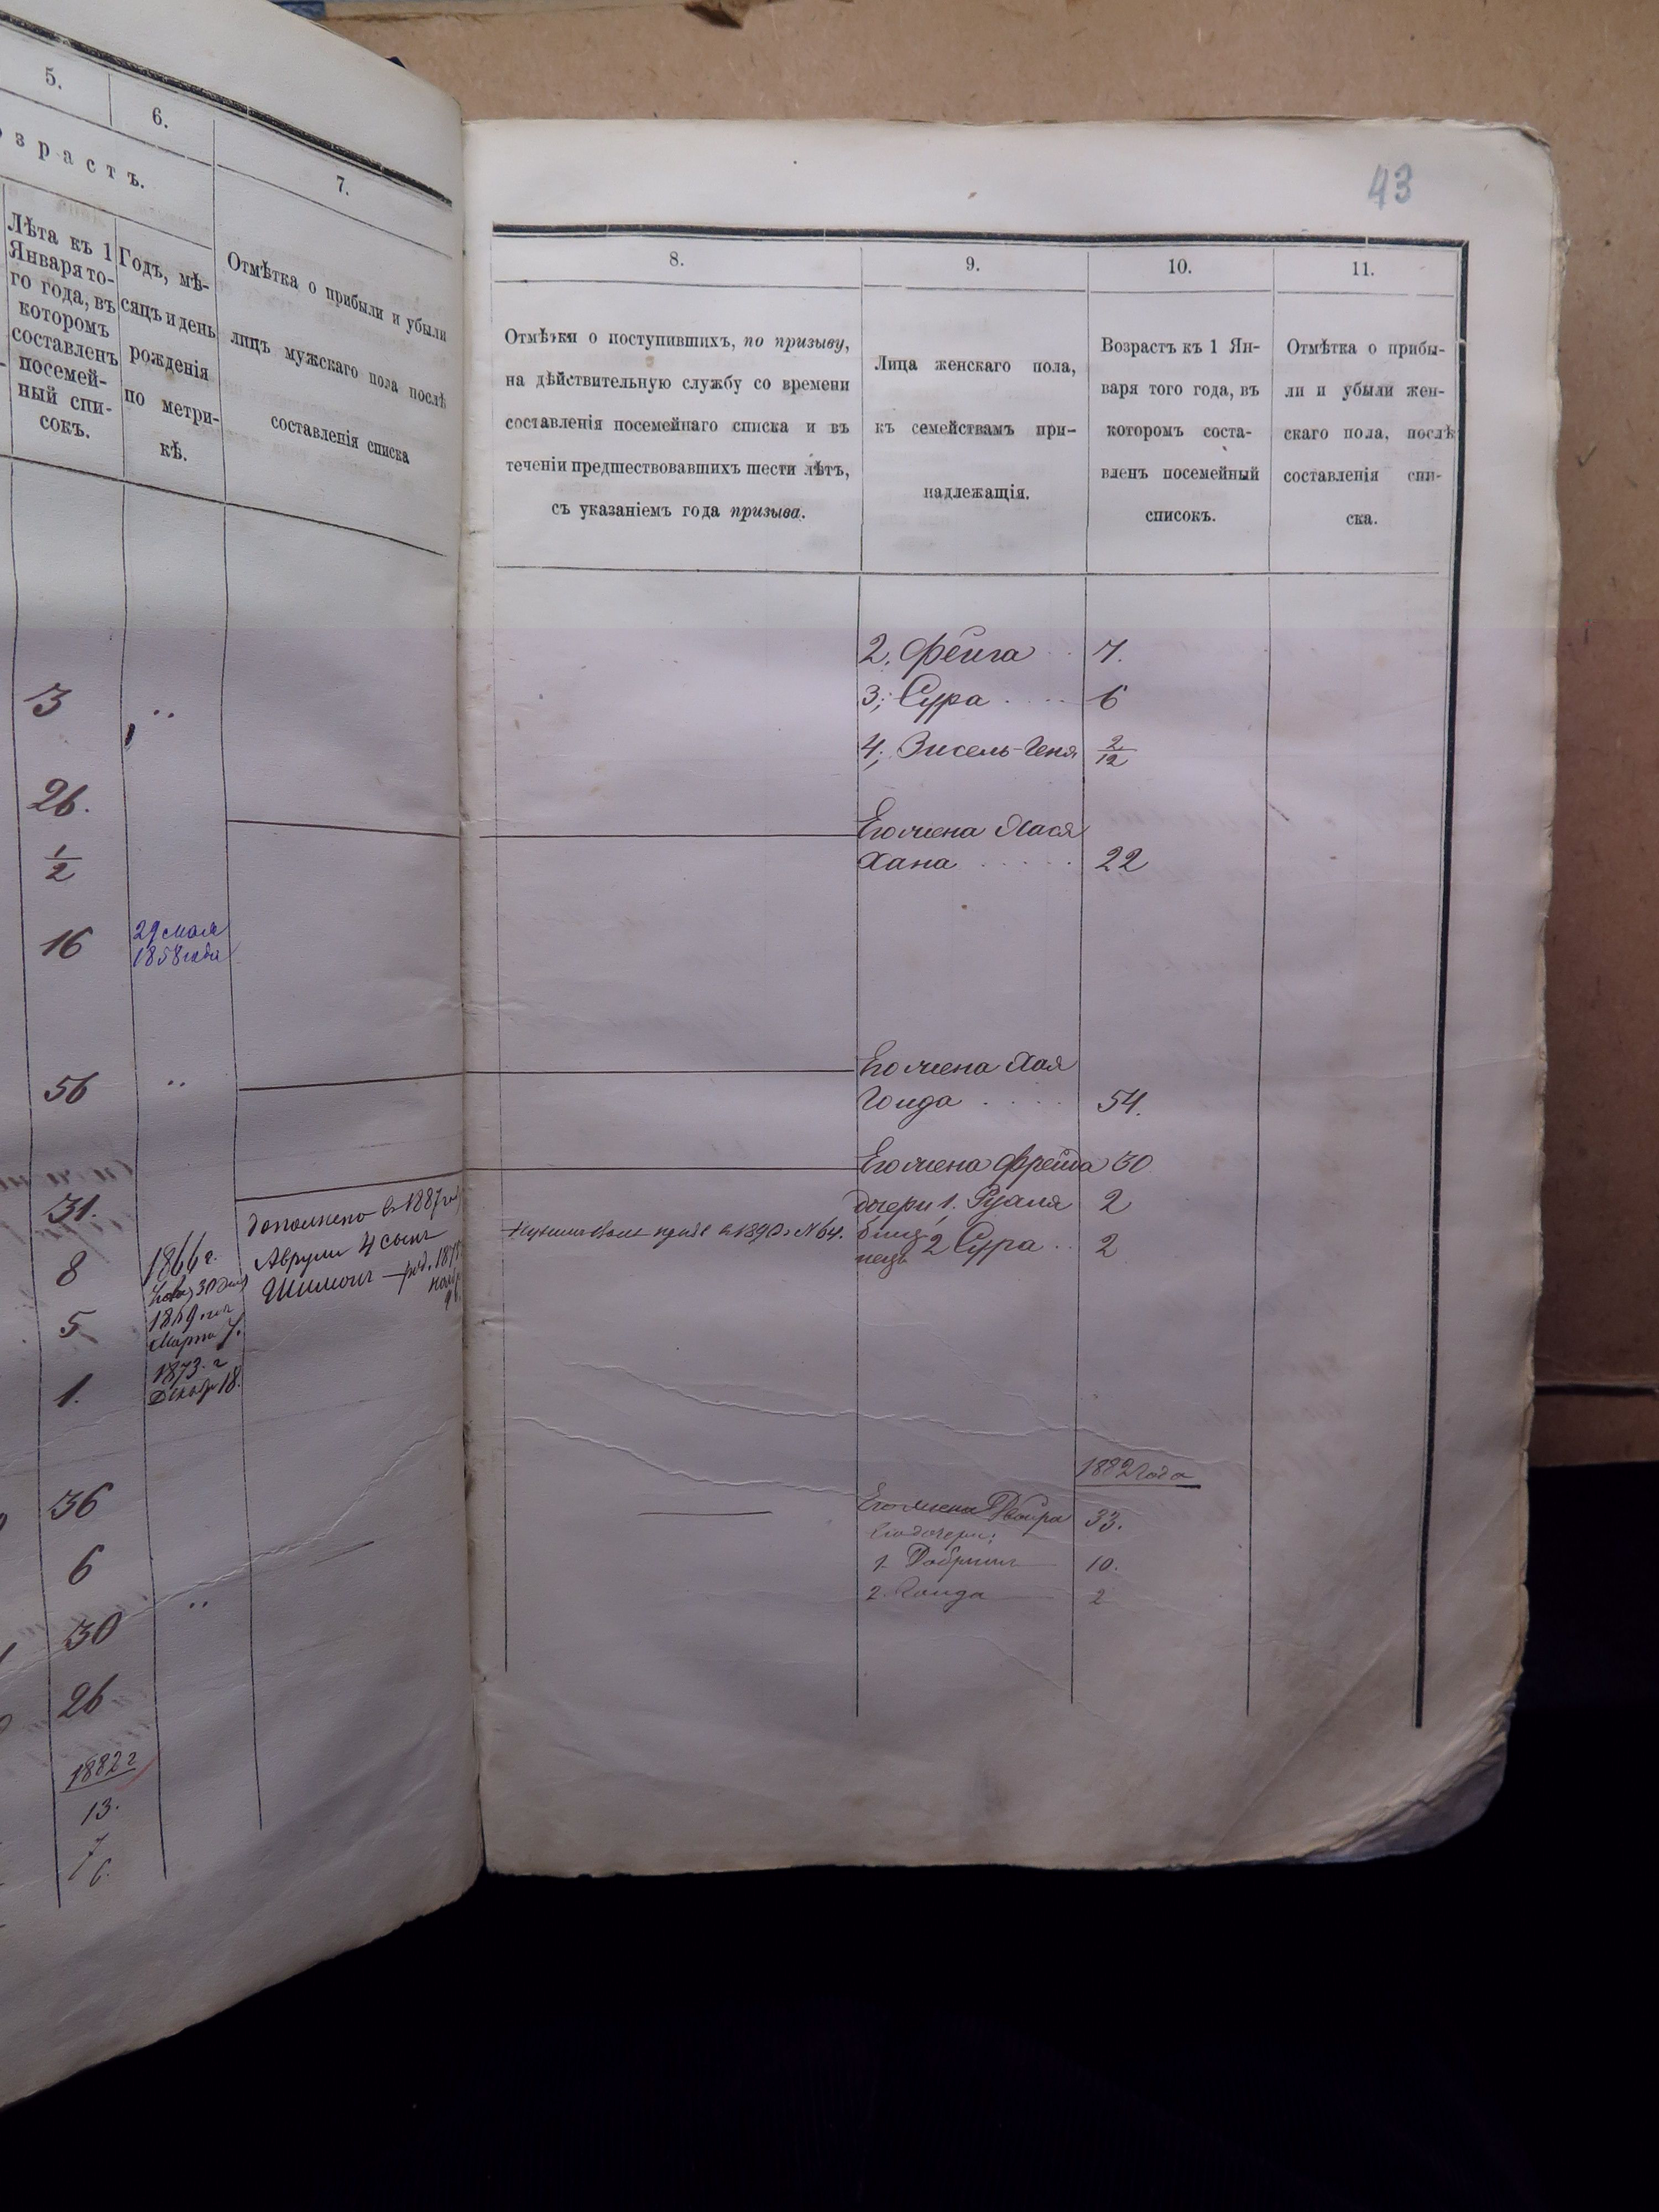 5.
6.
7.
озрастъ.
Лѣта къ 1
Января то-
го года, въ
которомъ
составленъ
посемей-
ный спи-
сокъ.
Годъ, мѣ-
сяцъ и день
рожденія
по метри-
кѣ.
Отмѣтка о прибыли и убыли
лицъ мужскаго пола послѣ
составленія списка
3
26.
1/2
16
29 мая
1858 года
56
31.
дополнено въ 1887 году
8
1866 г.
Аврумъ 4 сынъ
Шимонъ — род. 187
5
1859
Марта 7.
1.
1873. г
Декабр 18.
36
6
30
26
1882 г
13.
7
6.
43
8.
9.
10.
11.
Отмѣтки о поступившихъ, по призыву,
на дѣйствительную службу со времени
составленія посемейнаго списка и въ
теченіи предшествовавшихъ шести лѣтъ,
съ указаніемъ года призыва.
Лица женскаго пола,
къ семействамъ при-
надлежащія.
Возрастъ къ 1 Ян-
варя того года, въ
которомъ соста-
вленъ посемейный
списокъ.
Отмѣтка о прибы-
ли и убыли жен-
скаго пола, послѣ
составленія спи-
ска.
2. Фейга 7.
3; Сура 6
4; Зисель-Геня 2/12
Его жена Хася
Хана 22
Его жена Хая
Голда 54.
Его жена Фрейда 30
дочери 1. Рузля 2
в 1890 г N 64. близ-
нецы 2 Сура 2
1882 года
Его жена Двойра 33.
Его дочери:
1. Добришъ 10.
2. Голда 2